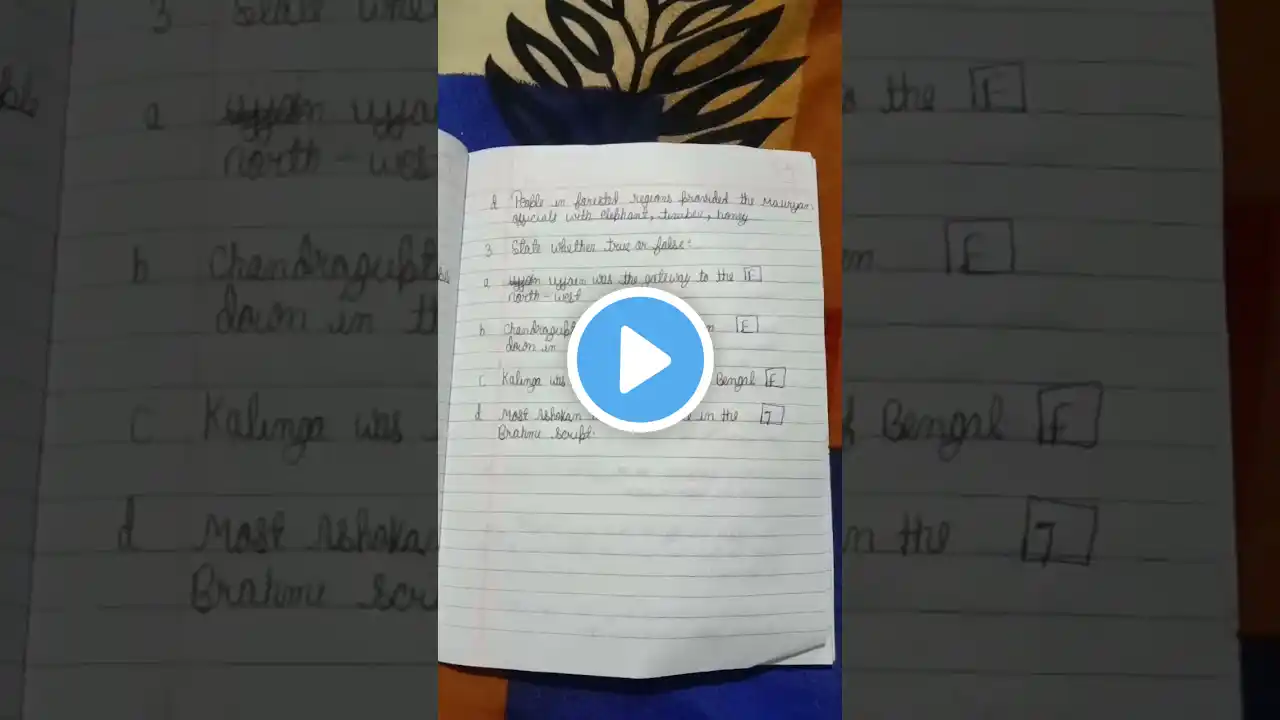 d People in forested regions provided the Mauryan
officials with elephant, timber, honey
3 State whether true or false:
a ujjain was the gateway to the F
north - west
b Chandragupt F
down in
c Kalinga was Bengal F
d Most Ashokan in the T
Brahme script.